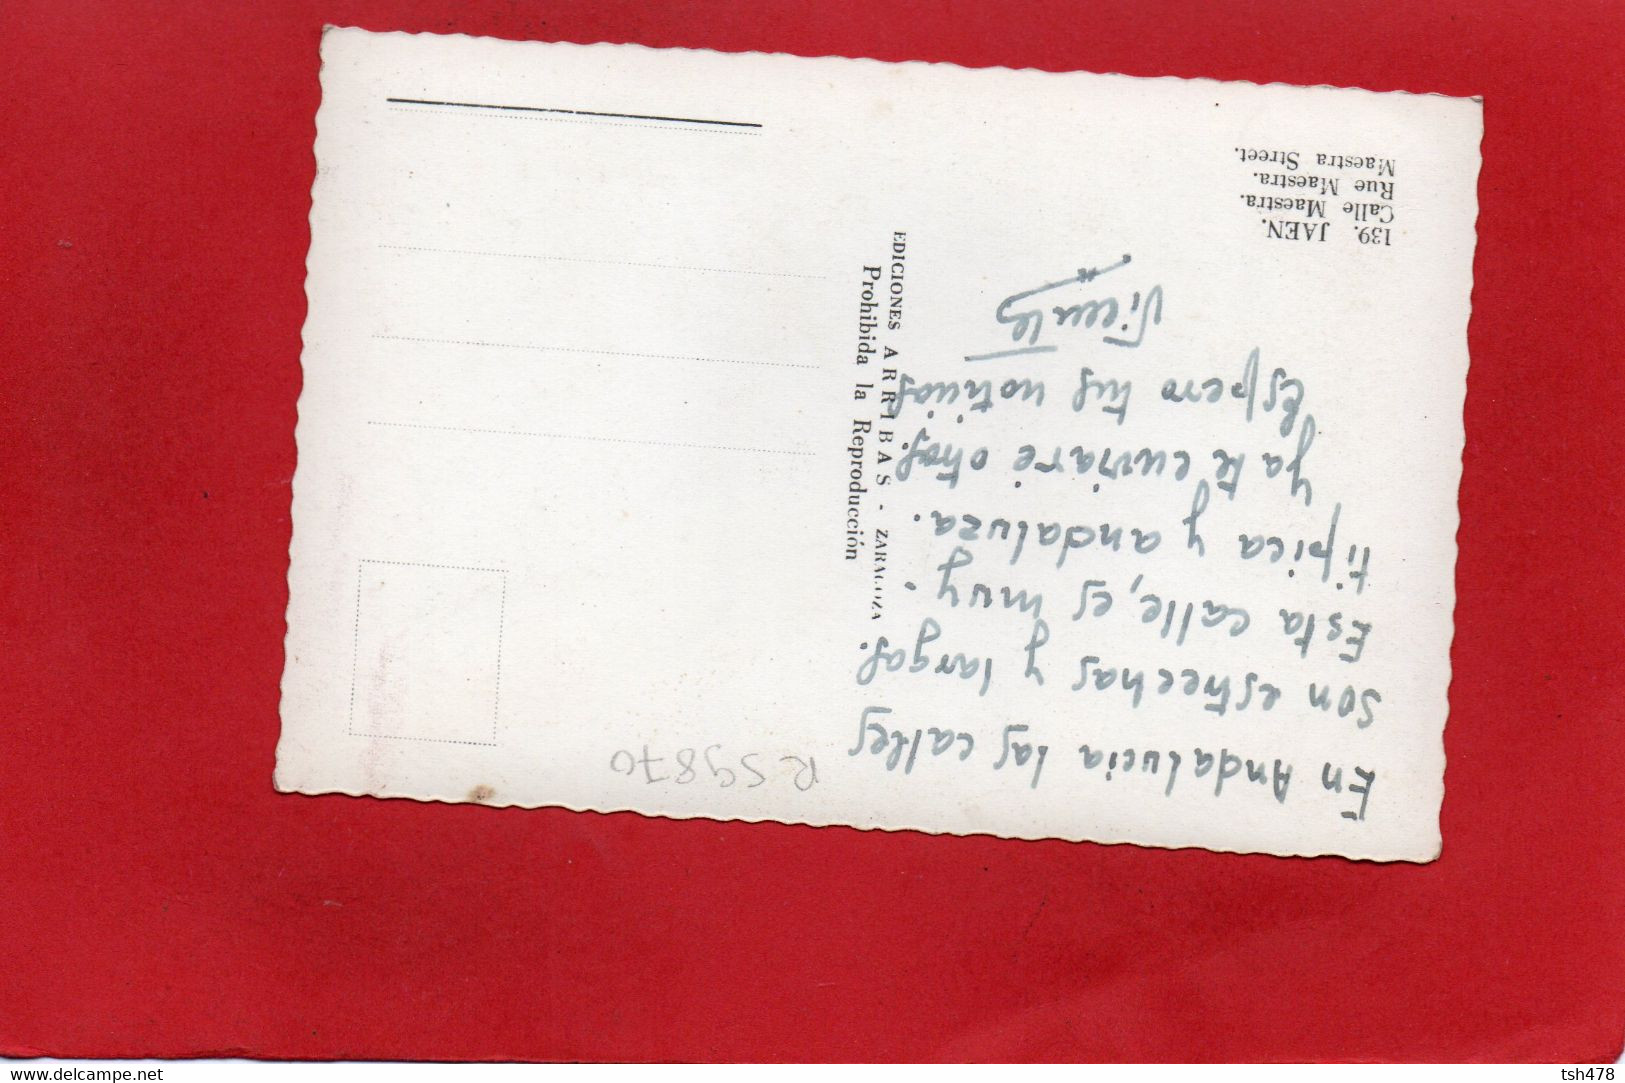 139. JAEN.
Calle Maestra.
Rue Maestra.
Maestra Street.
En Andalucia las calles
son estrechas y largas.
Esta calle, es muy -
tipica y andaluza.
Ya te enviaré otras.
Espero tus noticias
Vicente
EDICIONES ARRIBAS - ZARAGOZA
Prohibida la Reproducción
R 59870
www.delcampe.net
tsh478